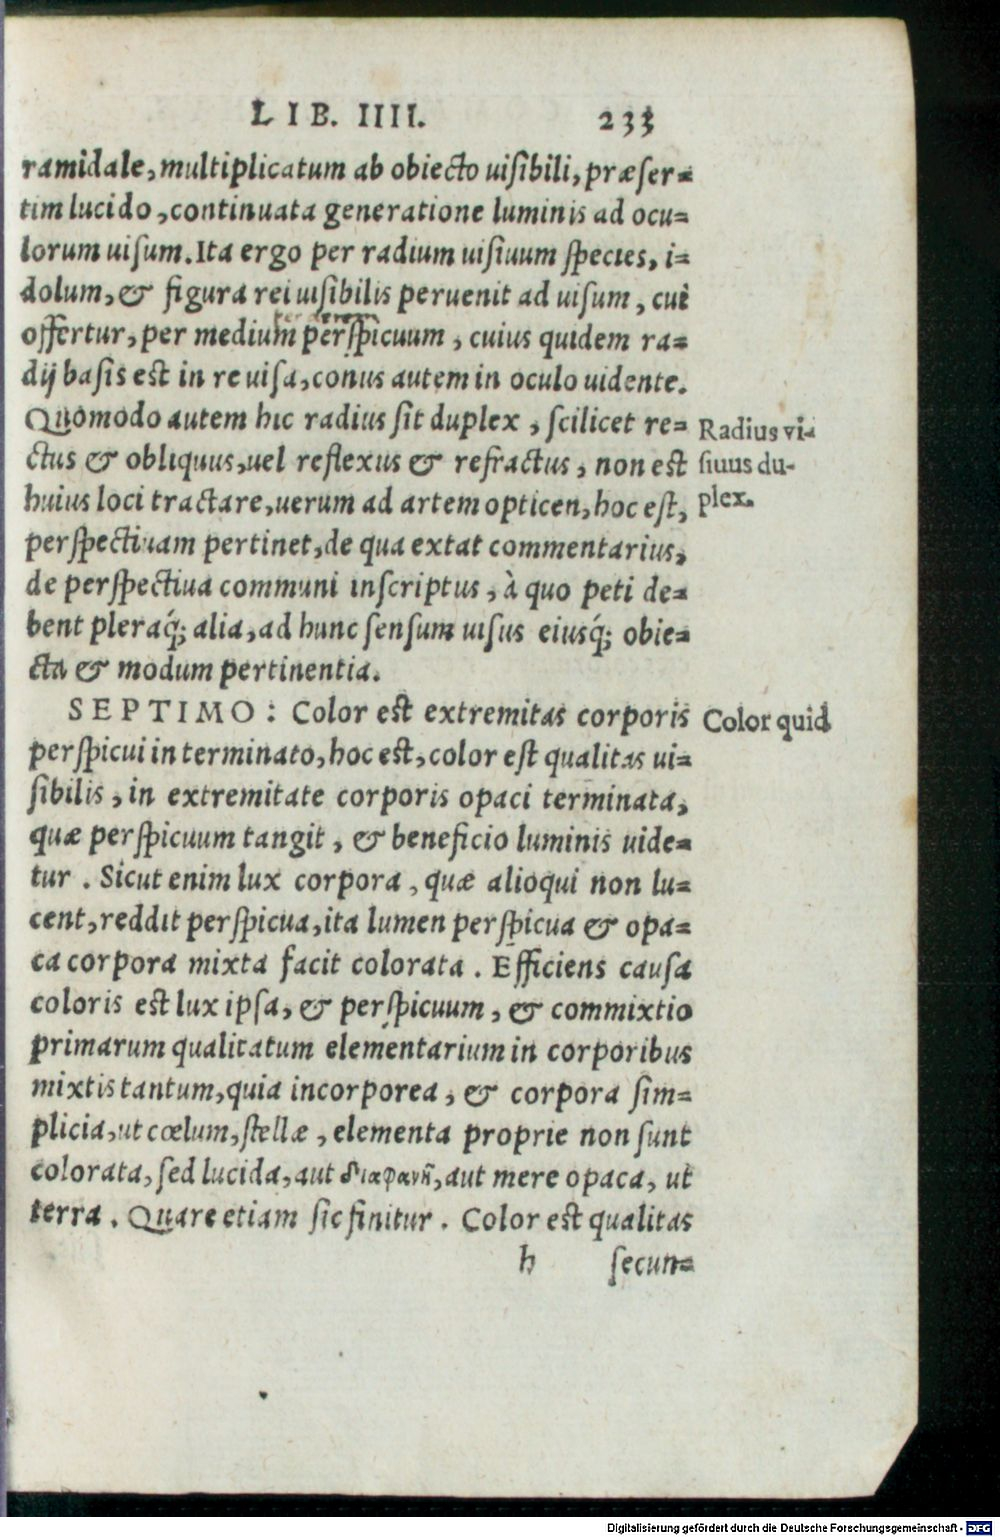 LIB. IIII. 233
ramidale, multiplicatum ab obiecto uisibili, præser=
tim lucido, continuata generatione luminis ad ocu=
lorum uisum. Ita ergo per radium uisiuum species, i=
dolum, & figura rei uisibilis peruenit ad uisum, cui
offertur, per medium perspicuum, cuius quidem ra=
dij basis est in re uisa, conus autem in oculo uidente.
Quomodo autem hic radius sit duplex, scilicet re=
Radius vi-
ctus & obliquus, uel reflexus & refractus, non est
siuus du-
huius loci tractare, uerum ad artem opticen, hoc est,
plex.
perspectiuam pertinet, de qua extat commentarius,
de perspectiua communi inscriptus, à quo peti de=
bent pleraq́; alia, ad hunc sensum uisus eiusq́; obie=
cta & modum pertinentia.
SEPTIMO: Color est extremitas corporis
Color quid
perspicui in terminato, hoc est, color est qualitas ui=
sibilis, in extremitate corporis opaci terminata,
quæ perspicuum tangit, & beneficio luminis uide=
tur. Sicut enim lux corpora, quæ alioqui non lu=
cent, reddit perspicua, ita lumen perspicua & opa=
ca corpora mixta facit colorata. Efficiens causa
coloris est lux ipsa, & perspicuum, & commixtio
primarum qualitatum elementarium in corporibus
mixtis tantum, quia incorporea, & corpora sim=
plicia, ut cœlum, stellæ, elementa proprie non sunt
colorata, sed lucida, aut διαφανῆ, aut mere opaca, ut
terra. Quare etiam sic finitur. Color est qualitas
h secun=
Digitalisierung gefördert durch die Deutsche Forschungsgemeinschaft - DFG